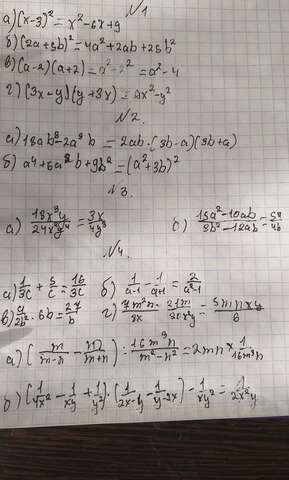 №1
а) (x-3)² = x²-6x+9
б) (2a+5b)² = 4a²+2ab+25b²
в) (a-2)(a+2) = a²-2² = a²-4
г) (3x-y)(y+3x) = 9x²-y²
№2.
а) 18ab³-2a³b = 2ab·(3b-a)(3b+a)
б) a⁴+6a²b+9b² = (a²+3b)²
№3.
а) 18x³y/24x²y⁴ = 3x/4y³ б) 15a²-10ab/8b²-12ab = 5a/4b
№4.
а) 1/3c + 5/c = 16/3c б) 1/a-1 - 1/a+1 = 2/a²-1
в) 9/2b² · 6b = 27/b г) 7m²n/8x · 21m/20x²y = 5mnxy/6
а) (m/m-n - m/m+n) : 16m³n/m²-n² = 2mn × 1/16m³n
б) (1/x² - 1/xy + 1/y²) · (1/2x-y - 1/y-2x) - 1/xy² = 1/2x²y